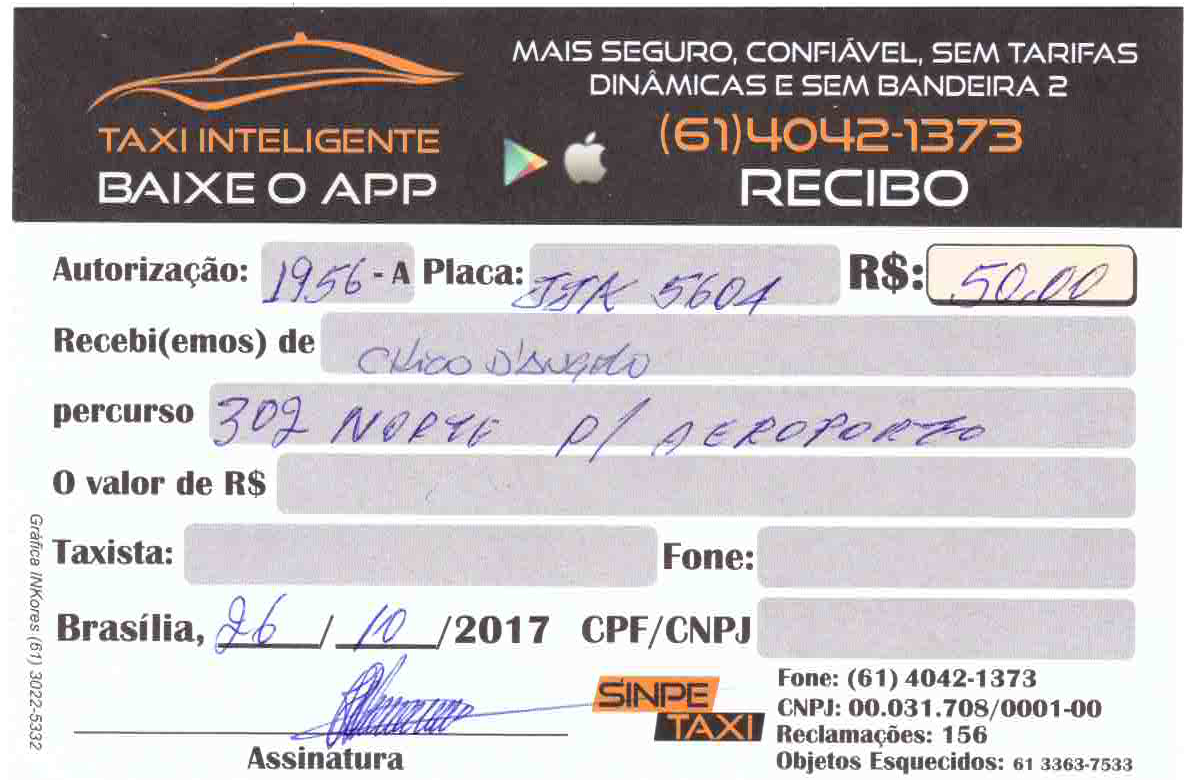 MAIS SEGURO, CONFIÁVEL, SEM TARIFAS
DINÂMICAS E SEM BANDEIRA 2
TAXI INTELIGENTE
BAIXE O APP
(61)4042-1373
RECIBO
Autorização: 1956 - A Placa: JJK 5604 R$: 50,00
Recebi(emos) de CHICO D'ANGELO
percurso 302 NORTE P/ AEROPORTO
O valor de R$
Taxista: Fone:
Brasília, 26 / 10 /2017 CPF/CNPJ
Assinatura
SINPE
TAXI
Fone: (61) 4042-1373
CNPJ: 00.031.708/0001-00
Reclamações: 156
Objetos Esquecidos: 61 3363-7533
Gráfica INKores (61) 3022-5332